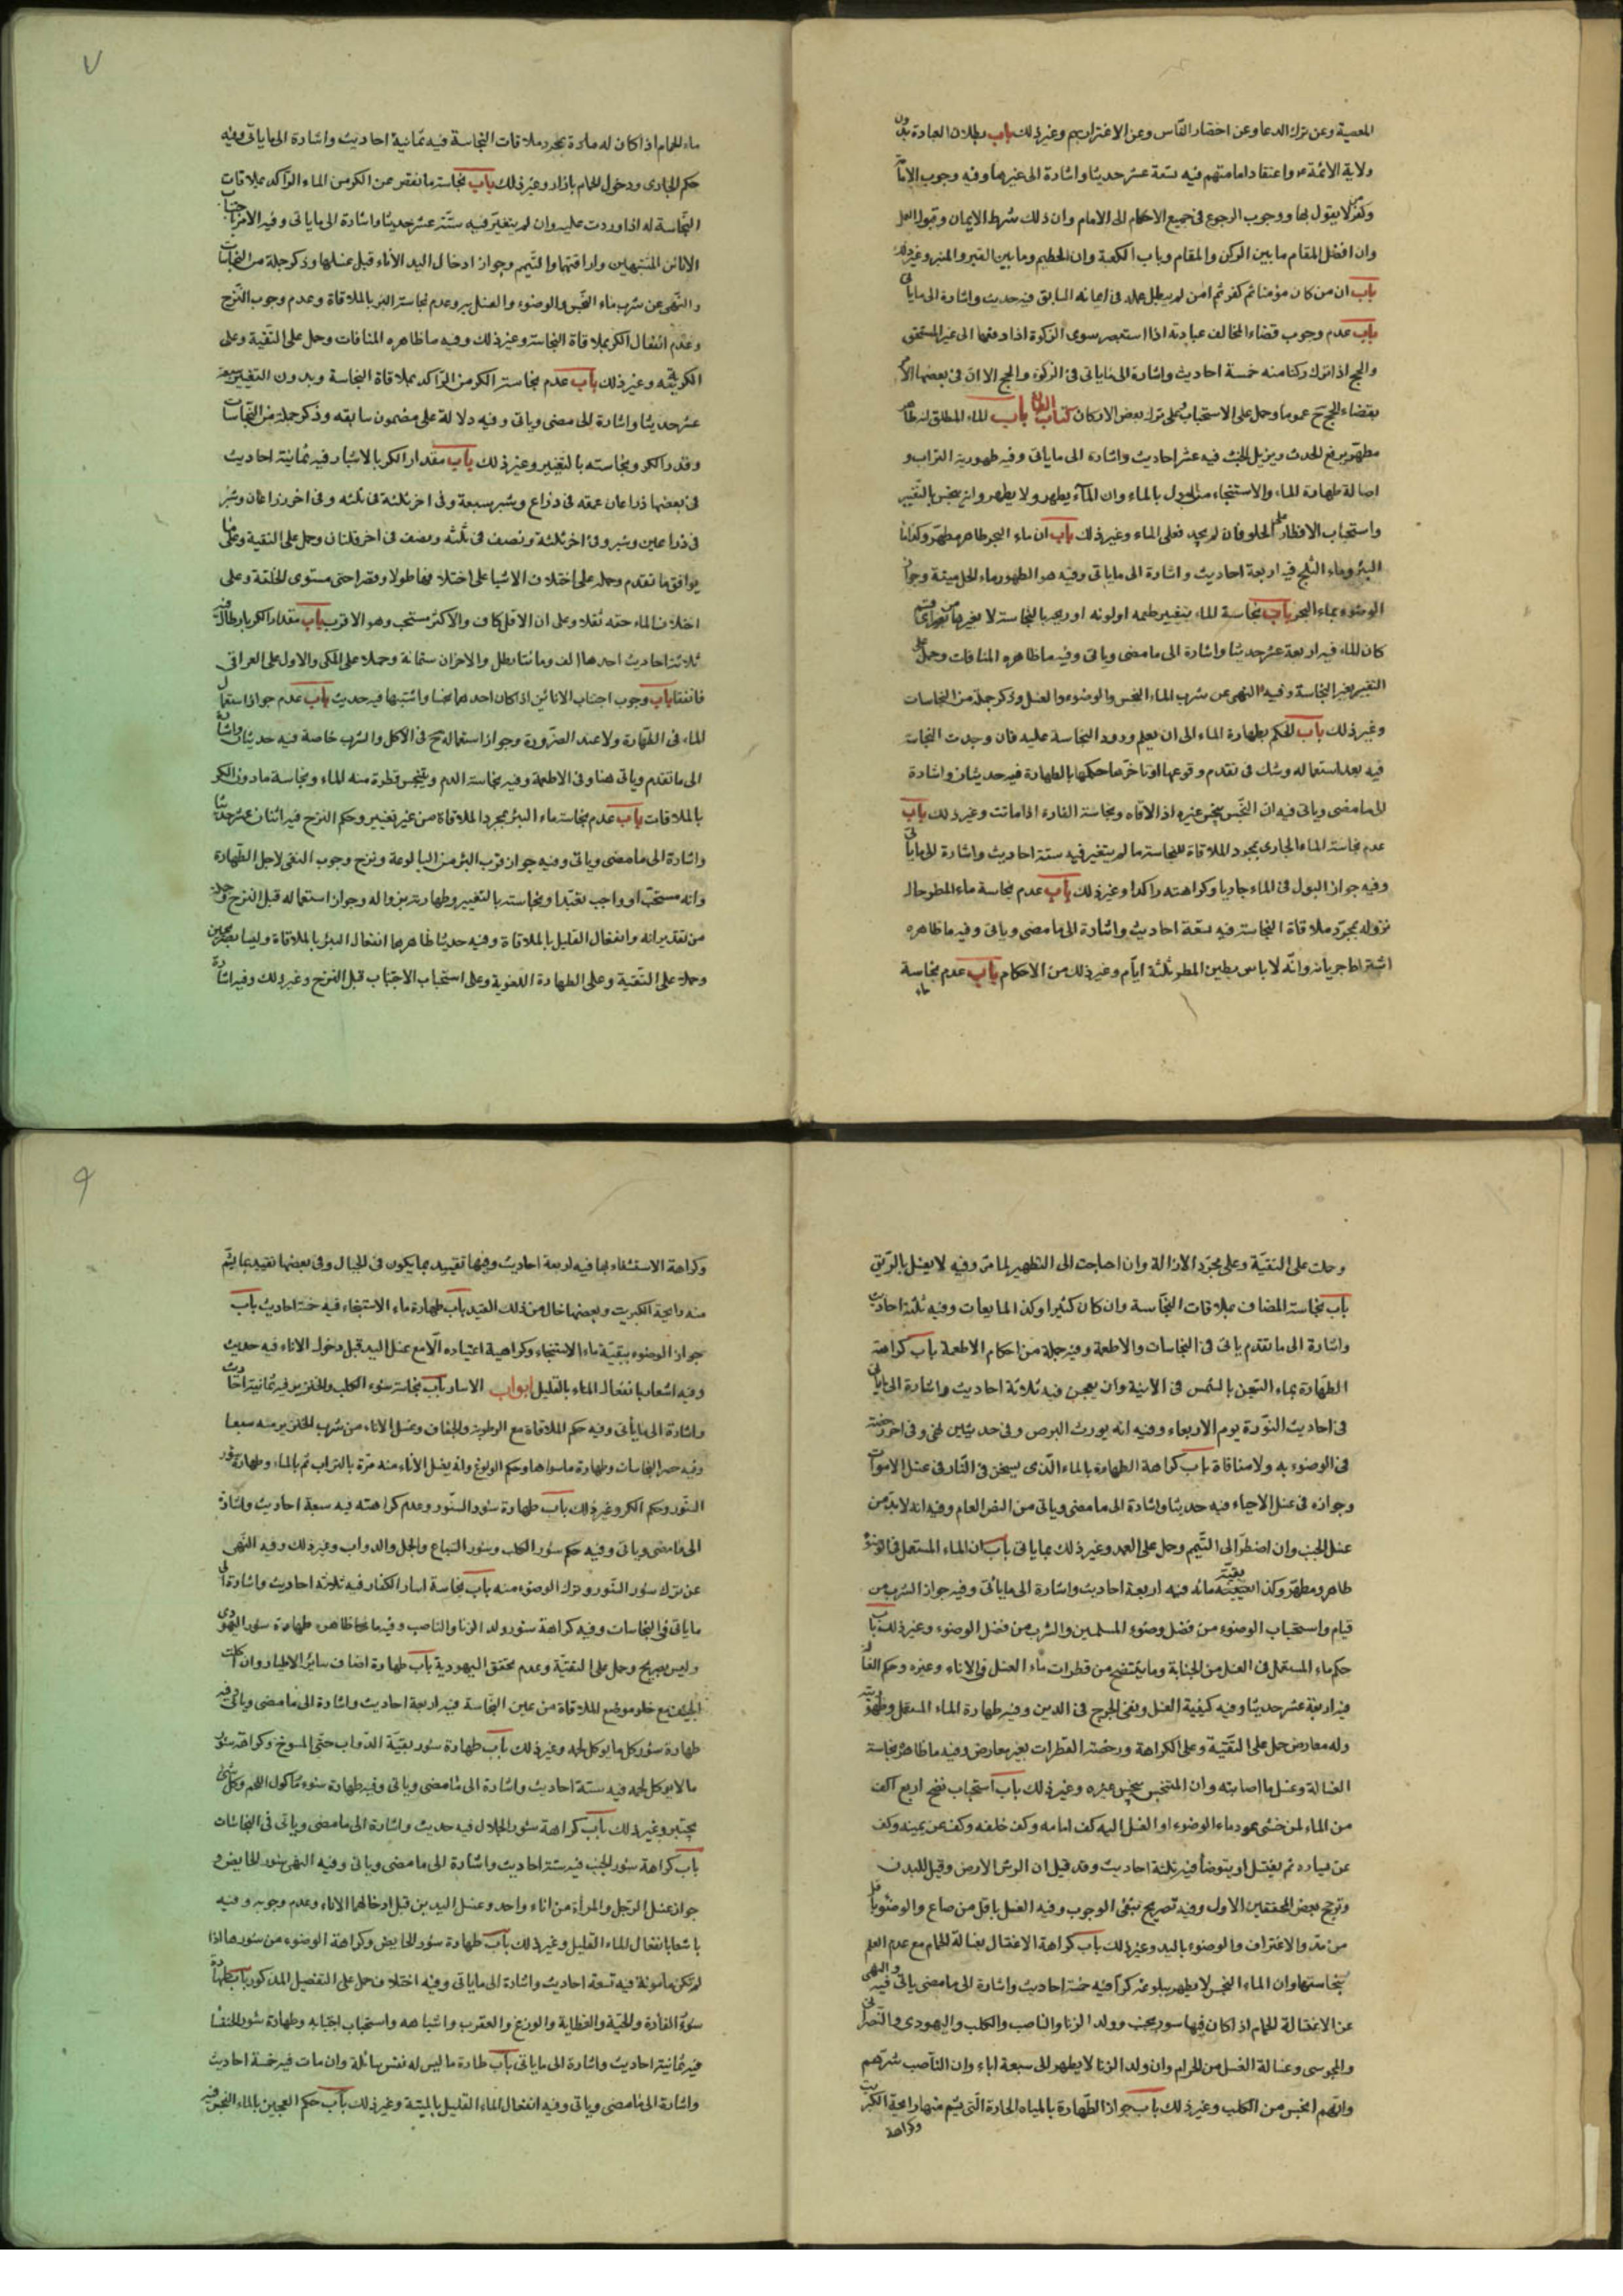 المعصية وعن ترك الدعا وعن احتضار الناس وعن الاغترار بهم وغير ذلك باب بطلان العبادة بدون
ولاية الائمة واعتقاد امامتهم فيه تسعة عشر حديثا واشارة الى غيرها وفيه وجوب الاما
لا يقول بها ووجوب الرجوع فى جميع الاحكام الى الامام وان ذلك شرط الايمان وقبول العمل
وان افضل المقام ما بين الركن والمقام وباب الكعبة وان الحطيم وما بين القبر والمنبر وغير ذلك
باب ان من كان مؤمنا ثم كفر ثم امن لم يبطل عمله فى ايمانه السابق فيه حديث واشارة الى ماياتى
باب عدم وجوب قضاء المخالف عبادته اذا استبصر سوى الزكوة اذا دفعها الى غير المستحق
والحج اذا ترك ركنا منه خمسة احاديث واشارة الى ماياتى فى الزكوة والحج الا ان فى بعضها الامر
بقضاء الحج عموما وحمل على الاستحباب وعلى ترك بعض الاركان كتاب الطهارة باب الماء المطلق طاهر
مطهر يرفع الحدث ويزيل الخبث فيه عشر احاديث واشارة الى ماياتى وفيه طهورية التراب و
اصالة طهارة الماء والاستنجاء من البول بالماء وان الماء يطهر ولا يطهر وانه ينجس بالتغير
واستحباب الافطار على الحلو فان لم يجد فعلى الماء وغير ذلك باب ان ماء البحر طاهر مطهر وكذا ماء
البئر وماء الثلج فيه اربعة احاديث واشارة الى ماياتى وفيه هو الطهور ماءه الحل ميتته وجواز
الوضوء بماء البحر باب نجاسة الماء بتغير طعمه او لونه او ريحه بالنجاسة لا بغيرها من اى قسم
كان الماء فيه اربعة عشر حديثا واشارة الى مامضى وياتى وفيه ما ظاهره المنافات وحمل على
التغير بغير النجاسة وفيه النهى عن شرب الماء النجس والوضوء والغسل وذكر جملة من النجاسات
وغير ذلك باب الحكم بطهارة الماء الى ان يعلم ورود النجاسة عليه فان وجدت النجاسة
فيه بعد استعماله وشك فى تقدم وقوعها او تاخرها حكمها بالطهارة فيه حديثان واشارة
الى مامضى وياتى فيه ان النجس ينجس غيره اذا لاقاه ونجاسة الفارة اذا ماتت وغير ذلك باب
عدم نجاسة الماء الجارى بمجرد الملاقاة للنجاسة ما لم يتغير فيه ستة احاديث واشارة الى ماياتى
وفيه جواز البول فى الماء جاريا وكراهته راكدا وغير ذلك باب عدم نجاسة ماء المطر حال
نزوله بمجرد ملاقاة النجاسة فيه تسعة احاديث واشارة الى مامضى وياتى وفيه ما ظاهره
اشتراط جريانه وانه لا باس بطين المطر ثلثة ايام وغير ذلك من الاحكام باب عدم نجاسة
ماء
٧
ماء الحمام اذا كان له مادة بمجرد ملاقات النجاسة فيه ثمانية احاديث واشارة الى ماياتى وفيه
حكم الجارى ودخول الحمام بازار وغير ذلك باب نجاسة ما نقص عن الكر من الماء الراكد بملاقات
النجاسة له اذا وردت عليه وان لم يتغير فيه ستة عشر حديثا واشارة الى ماياتى وفيه الامر باجتناب
الانائين المشتبهين واراقتهما والتيمم وجواز ادخال اليد الاناء قبل غسلها وذكر جملة من النجاسات
والنهى عن شرب ماء النجس والوضوء والغسل به وعدم نجاسة البئر بالملاقاة وعدم وجوب النزح
وعدم انفعال الكر بملاقاة النجاسة وغير ذلك وفيه ما ظاهره المنافات وحمل على التقية وعلى
الكرية وغير ذلك باب عدم نجاسة الكر من الراكد بملاقاة النجاسة وبدون التغيير فيه تسعة
عشر حديثا واشارة الى مامضى وياتى وفيه دلالة على مضمون سابقه وذكر جملة من النجاسات
وقدر الكر ونجاسته بالتغيير وغير ذلك باب مقدار الكر بالاشبار فيه ثمانية احاديث
فى بعضها ذراعان عمقه فى ذراع وشبر سعة وفى اخر ثلثة فى ثلثة وفى اخر ذراعان وشبر
فى ذراعين وشبر وفى اخر ثلثة ونصف فى ثلثة ونصف فى اخر قلتان وحمل على التقية وعلى ما
يوافق ما تقدم وحمله على اختلاف الاشبار على اختلافها طولا وقصرا حتى مستوى الخلقة وعلى
اختلاف الماء خفة ثقلا وعلى ان الاقل كاف والاكثر مستحب وهو الاقرب باب مقدار الكر بارطال فيه
ثلاثة احاديث احدها الف ومائتا رطل والاخران ستمائة وحملا على المكى والاول على العراقى
فاتفقا باب وجوب اجتناب الانائين اذا كان احدهما نجسا واشتبها فيه حديث باب عدم جواز استعمال
الماء فى الطهارة ولا عند الضرورة وجواز استعماله ح فى الاكل والشرب خاصة فيه حديثان واشارة
الى ما تقدم وياتى هنا وفى الاطعمة وفيه نجاسة الدم وينجس قطرة منه الماء ونجاسة مادون الكر
بالملاقات باب عدم نجاسة ماء البئر بمجرد الملاقاة من غير تغيير وحكم النزح فيه اثنان عشر حديثا
واشارة الى مامضى وياتى وفيه جواز قرب البئر من البالوعة ونزح وجوب النفى لاجل الطهارة
وانه مستحب او واجب تعبدا ونجاسته بالتغيير وطهارته بزواله وجواز استعماله قبل النزح
وانفعال القليل بالملاقاة وفيه حديثا ظاهرهما انفعال البئر بالملاقاة وليسا بصريحين
وحملا على التقية وعلى الطهارة اللغوية وعلى استحباب الاجتناب قبل النزح وغير ذلك وفيه اشارة
وحملت على التقية وعلى مجرد الازالة وان احتاجت الى التطهير لما مر وفيه لا يغسل بالريق
باب نجاسة المضاف بملاقات النجاسة وان كان كثيرا وكذا المايعات وفيه ثلثة احاديث
واشارة الى ما تقدم ياتى فى النجاسات والاطعمة وفيه جملة من احكام الاطعمة باب كراهة
الطهارة بماء التسخن بالشمس فى الانية وان يعجن فيه ثلاثة احاديث واشارة الى ماياتى
فى احاديث النورة يوم الاربعاء وفيه انه يورث البرص وفى حديثين نهى وفى اخر رخصة
فى الوضوء به ولا منافاة باب كراهة الطهارة بالماء الذى يسخن فى النار فى غسل الاموات
وجوازه فى غسل الاحياء فيه حديثا واشارة الى مامضى وياتى من النص العام وفيه انه لابد من
غسل الجنب وان اضطر الى التيمم وحمل على العمد وغير ذلك مما ياتى باب ان الماء المستعمل فى الوضوء
طاهر ومطهر وكذا بقية مائه فيه اربعة احاديث واشارة الى ماياتى وفيه جواز الشرب من
قيام واستحباب الوضوء من فضل وضوء المسلمين والشرب من فضل الوضوء وغير ذلك باب
حكم ماء المستعمل فى الغسل من الجنابة وما ينتضح من قطرات ماء الغسل فى الاناء وغيره وحكم الغسالة
فيه اربعة عشر حديثا وفيه كيفية الغسل ونفى الحرج فى الدين وفيه طهارة الماء المستعمل وطهوريته
وله معارض حمل على التقية وعلى الكراهة ورخصة القطرات بغير معارض وفيه ما ظاهره نجاسة
الغسالة وغسل ما اصابته وان المتنجس ينجس غيره وغير ذلك باب استحباب نضح اربع اكف
من الماء لمن خشى عود ماء الوضوء او الغسل اليه كف امامه وكف خلفه وكف عن يمينه وكف
عن يساره ثم يغتسل او يتوضأ فيه ثلثة احاديث وقد قيل ان الرش الارض وقيل للبدن
ورجح بعض المحققين الاول وفيه تصريح بنفى الوجوب وفيه الغسل باقل من صاع والوضوء باقل
من مد والاغتراف والوضوء باليد وغير ذلك باب كراهة الاغتسال بغسالة الحمام مع عدم العلم
بنجاستها وان الماء النجس لا يطهر ببلوغه كرا فيه خمسة احاديث واشارة الى مامضى ياتى فيه والنهى
عن الاغتسالة الحمام اذا كان فيها سور جنب وولد الزنا والناصب والكلب واليهودى والنصرانى
والمجوسى وغسالة الغسل من الحرام وان ولد الزنا لا يطهر الى سبعة اباء وان الناصب شرهم
وانهم انجس من الكلب وغير ذلك باب جواز الطهارة بالمياه الحارة التى يشم منها رايحة الكبريت
وكراهة
٩
وكراهة الاستشفاء بها فيه اربعة احاديث وفيها تقييد بما يكون فى الجبال وفى بعضها تقييد بما يشم
منه رايحة الكبريت وبعضها خال من ذلك القيد باب طهارة ماء الاستنجاء فيه خمسة احاديث باب
جواز الوضوء ببقية ماء الاستنجاء وكراهية اعتياده الا مع غسل اليد قبل دخول الاناء فيه حديث
وفيه اشعار بانفعال الماء بالقليل ابواب الاسار باب نجاسة سؤر الكلب والخنزير فيه ثمانية احاديث
واشارة الى ماياتى وفيه حكم الملاقاة مع الرطوبة والجفاف وغسل الاناء من شرب الخنزير منه سبعا
وفيه حصر النجاسات وطهارة ماسواها وحكم الولوغ وانه يغسل الاناء منه مرة بالتراب ثم بالماء وطهارة سؤر
السنور وحكم الكر وغير ذلك باب طهارة سؤر السنور وعدم كراهته فيه سبعة احاديث واشارة
الى مامضى وياتى وفيه حكم سؤر الكلب وسؤر السباع والجمل والدواب وغير ذلك وفيه النهى
عن ترك سؤر السنور وترك الوضوء منه باب نجاسة اسار الكفار فيه ثلاثة احاديث واشارة الى
ماياتى فى النجاسات وفيه كراهة سؤر ولد الزنا والناصب وفيه ما ظاهره طهارة سؤر اليهودى
وليس بصريح وحمل على التقية وعدم تحقق اليهودية باب طهارة اصناف سائر الاطيار وان اكلت
الجيف مع خلو موضع الملاقاة من عين النجاسة فيه اربعة احاديث واشارة الى مامضى وياتى وفيه
طهارة سؤر كل ما يوكل لحمه وغير ذلك باب طهارة سؤر بقية الدواب حتى المسوخ وكراهة سؤر
ما لا يوكل لحمه فيه ستة احاديث واشارة الى مامضى وياتى وفيه طهارة سؤر ماكول اللحم وكل شئ
يجتر وغير ذلك باب كراهة سئور الجلال فيه حديث واشارة الى مامضى وياتى فى النجاسات
باب كراهة سئور الجنب فيه ستة احاديث واشارة الى مامضى وياتى وفيه النهى سئور الحايض و
جواز غسل الرجل والمراة من اناء واحد وغسل اليدين قبل ادخالهما الاناء وعدم وجوبه وفيه
باشعار بانفعال الماء القليل وغير ذلك باب طهارة سئور الحايض وكراهة الوضوء من سئورها اذا
لم تكن مامونة فيه تسعة احاديث واشارة الى ماياتى وفيه اختلاف حمل على التفصيل المذكور باب طهارة
سؤر الفارة والحية والعظاية والوزغ والعقرب واشباهه واستحباب اجتنابه وطهارة سئور الخنفسا
فيه ثمانية احاديث واشارة الى ماياتى باب طارة ما ليس له نفس سائلة وان مات فيه خمسة احاديث
واشارة الى مامضى وياتى وفيه انفعال الماء القليل بالميتة وغير ذلك باب حكم العجين بالماء النجس فيه